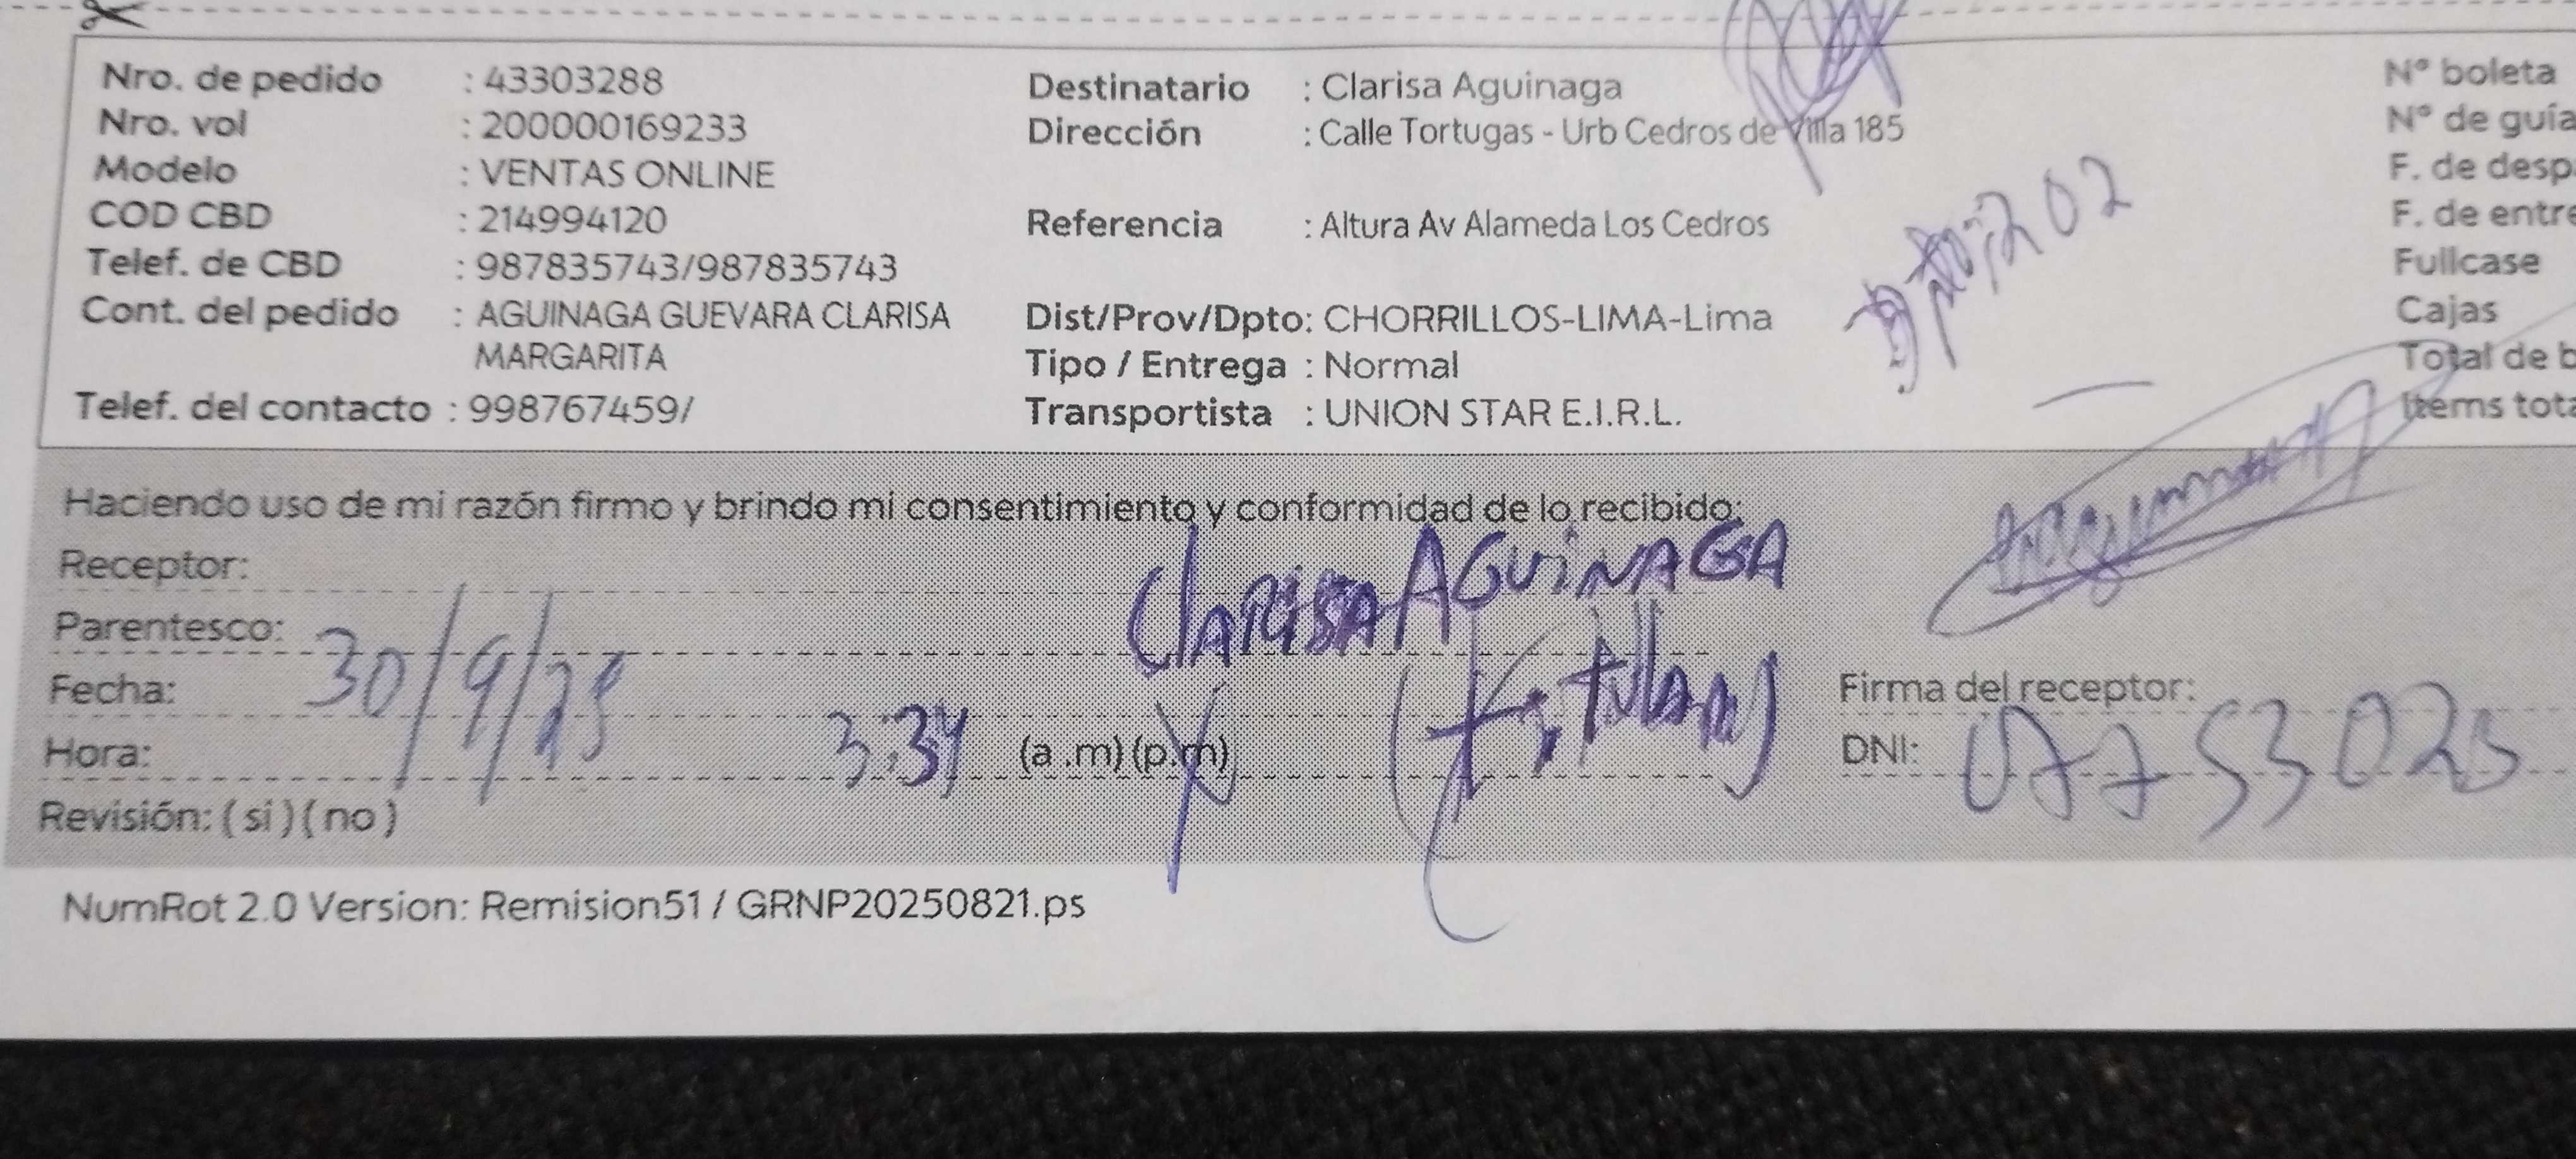 Nro. de pedido : 43303288
Nro. vol : 200000169233
Modelo : VENTAS ONLINE
COD CBD : 214994120
Telef. de CBD : 987835743/987835743
Cont. del pedido : AGUINAGA GUEVARA CLARISA
MARGARITA
Telef. del contacto : 998767459/
Destinatario : Clarisa Aguinaga
Dirección : Calle Tortugas - Urb Cedros de Villa 185
Referencia : Altura Av Alameda Los Cedros
Dist/Prov/Dpto: CHORRILLOS-LIMA-Lima
Tipo / Entrega : Normal
Transportista : UNION STAR E.I.R.L.
202
N° boleta
N° de guía
F. de desp
F. de entre
Fullcase
Cajas
Total de b
Items tota
Haciendo uso de mi razón firmo y brindo mi consentimiento y conformidad de lo recibido:
Receptor: Clarisa AGUINAGA
Parentesco: (titular)
Fecha: 30/9/25
Hora: 3:34 (a .m) (p.m)
Revisión: ( si ) ( no )
Firma del receptor:
DNI: 07753025
NumRot 2.0 Version: Remision51 / GRNP20250821.ps